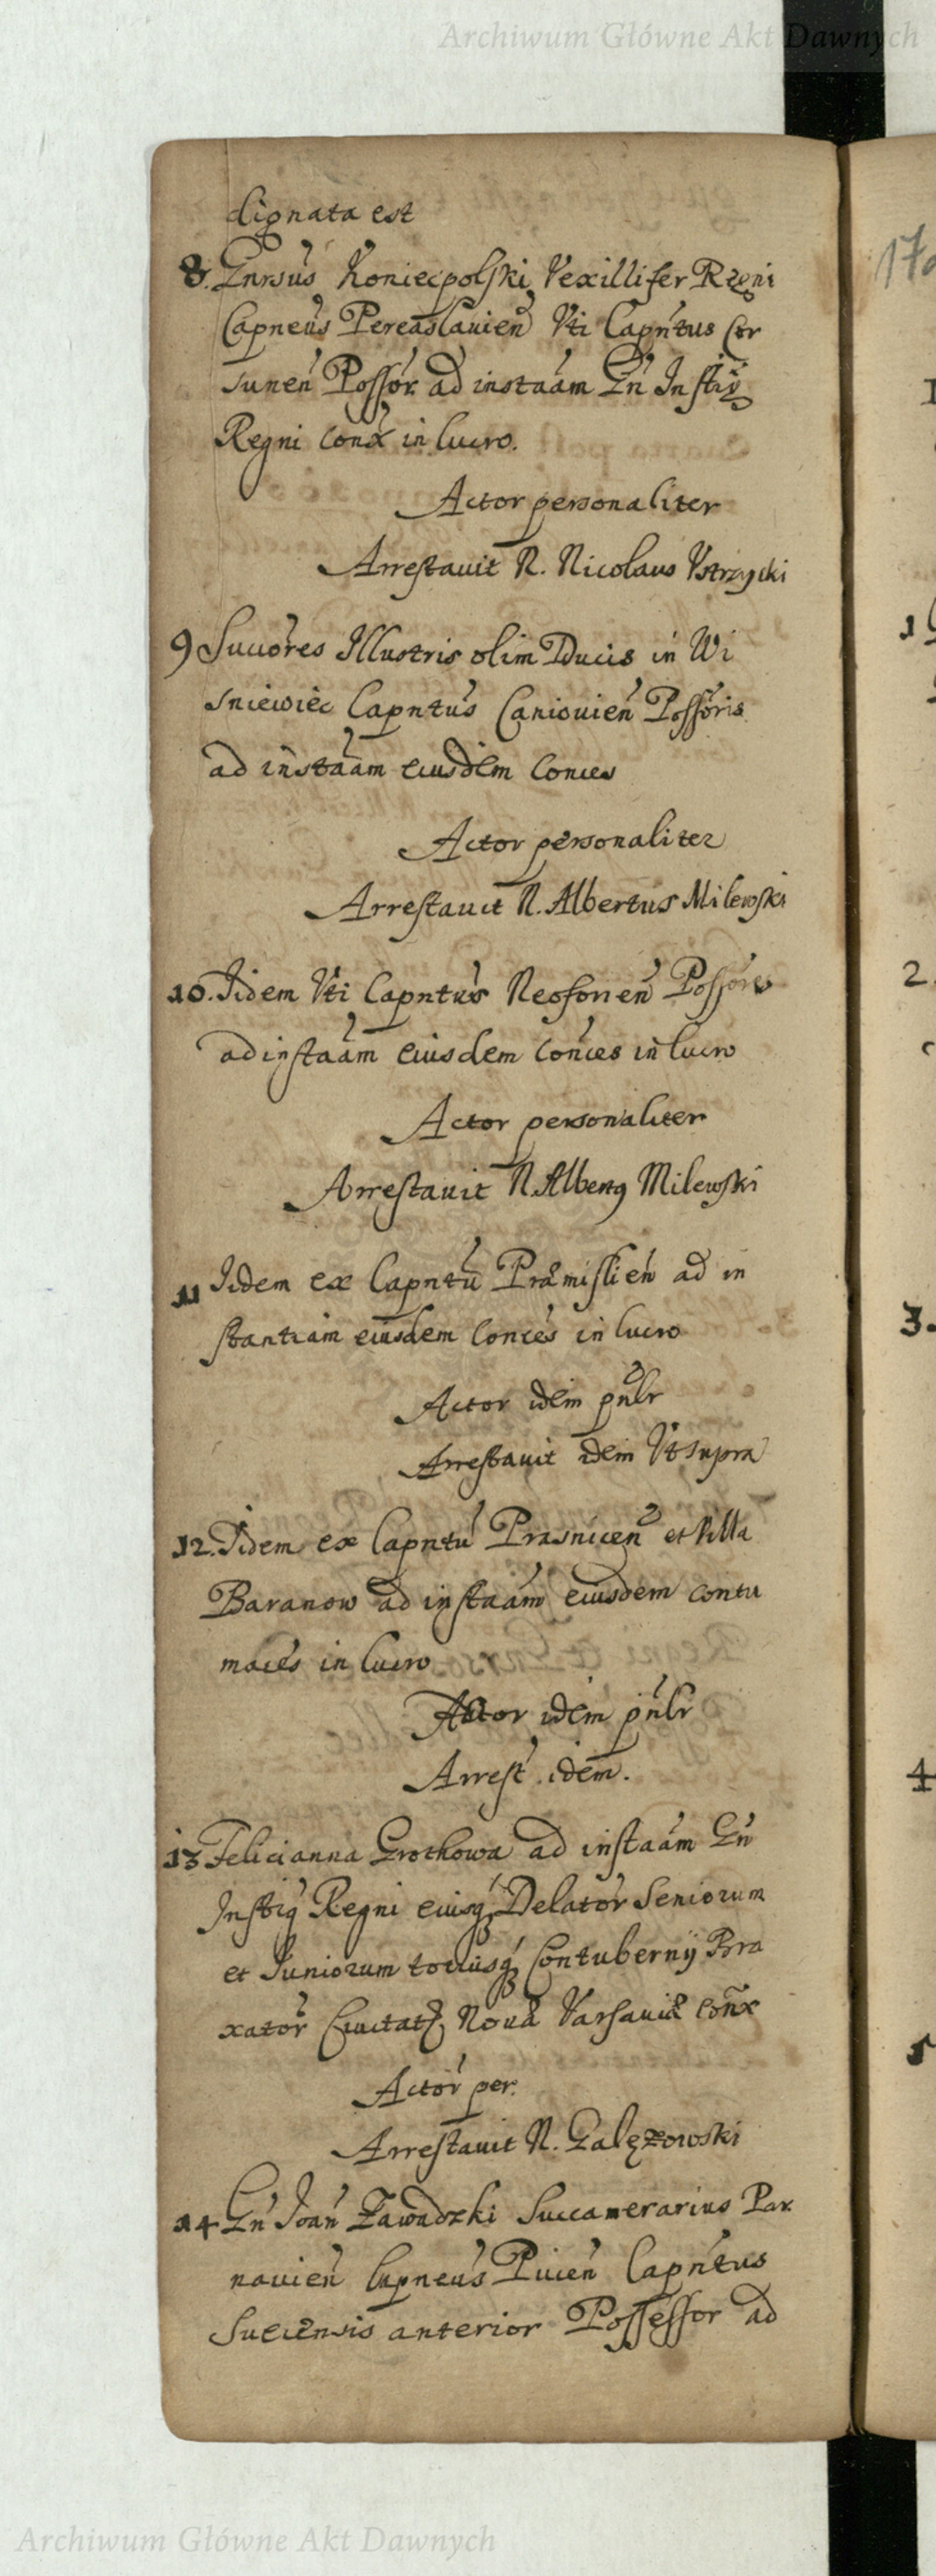 Archiwum Główne Akt Dawnych
dignata est
8. Gnrsús Koniecpolski Vexillifer Regni
Capneús Pereaslauień Vti Capńtus Cor
suneń Possór ad instaám Gń Instig
Regni Conx in lucro.
Actor personaliter
Arrestauit N. Nicolaus Vstrzycki
9 Succóres Illustris olim Ducis in Wi
sniewiec Capntús Caniouień Possóris
ad instaám eiusdem Conces
Actor personaliter
Arrestauit N. Albertus Milewski
10. Iidem Vti Capntús Neoforień Possóres
ad instaám eiusdem Conces in lucro
Actor personaliter
Arrestauit N. Albertꝰ Milewski
11 Iidem ex Capntú Præmislień ad in
stantiam eiusdem Conces in lucro
Actor idem pńlr
Arrestauit idem Vt supra
12. Iidem ex Capntú Prasniceń et Villa
Baranow ad instaám eiusdem contu
maces in lucro
Actor idem pńlr
Arrest idem.
13 Felicianna Grothowa ad instaám Gń
Instig Regni eiusq Delatór Seniorum
et Iuniorum totiusq Contubernij Bra
xatór Ciuitatꝭ Nouæ Varsauiæ Conx
Actór per.
Arrestauit N. Galęzowski
14 Gń Ioań Zawadzki Succamerarius Par
nauień Capneús Puceń Capńtus
Suecensis anterior Possessor ad
170
1
2.
3.
4
5
Archiwum Główne Akt Dawnych